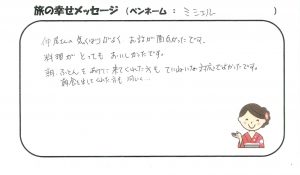 旅の幸せメッセージ（ペンネーム： ミシェル ）
仲居さんの気くばりがよく お話が面白かったです。
料理がとってもおいしかったです。
朝、ふとんをあげに来てくれた方も ていねいな対応でよかったです。
朝食を出してくれた方も 同じく…